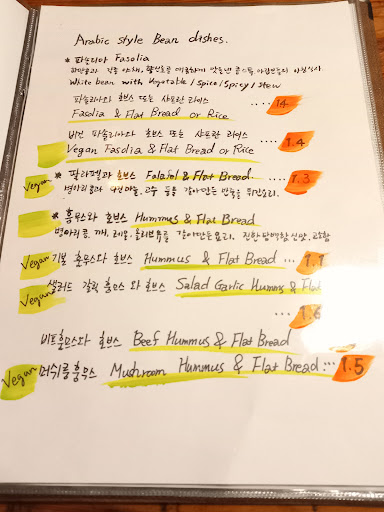 Arabic style Bean dishes.
* 파솔리아 Fasolia
White bean with Vegetable / Spice / Spicy / Stew
파솔리아와 호브스 또는 샤프란 라이스
Fasolia & Flat Bread or Rice .... 14
비건 파솔리아와 호브스 또는 샤프란 라이스
Vegan Fasolia & Flat Bread or Rice .... 1.4
Vegan * 팔라펠과 호브스 Falafel & Flat Bread .... 1.3
병아리콩과 고수 등을 갈아만든 반죽을 튀긴요리.
* 홈무스와 호브스 Hummus & Flat Bread
병아리콩, 깨, 레몬, 올리브유를 갈아만든요리. 진한 담백함, 신맛, 고소함
Vegan 기본 훔무스와 호브스 Hummus & Flat Bread ... 1.1
Vegan 샐러드 갈릭 홈무스 와 호브스 Salad Garlic Hummus & Flat
.... 1.6
비프훔무스와 호브스 Beef Hummus & Flat Bread
Vegan 머쉬룸훔무스 Mushroom Hummus & Flat Bread ... 1.5